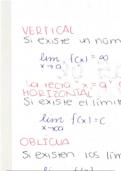 VERTICAL
Si existe un núm
lim f(x) = ∞
x→a
La recta x = "a"
HORIZONTAL
Si existe el límite
lim f(x) = C
x→∞
OBLICUA
Si existen los lím